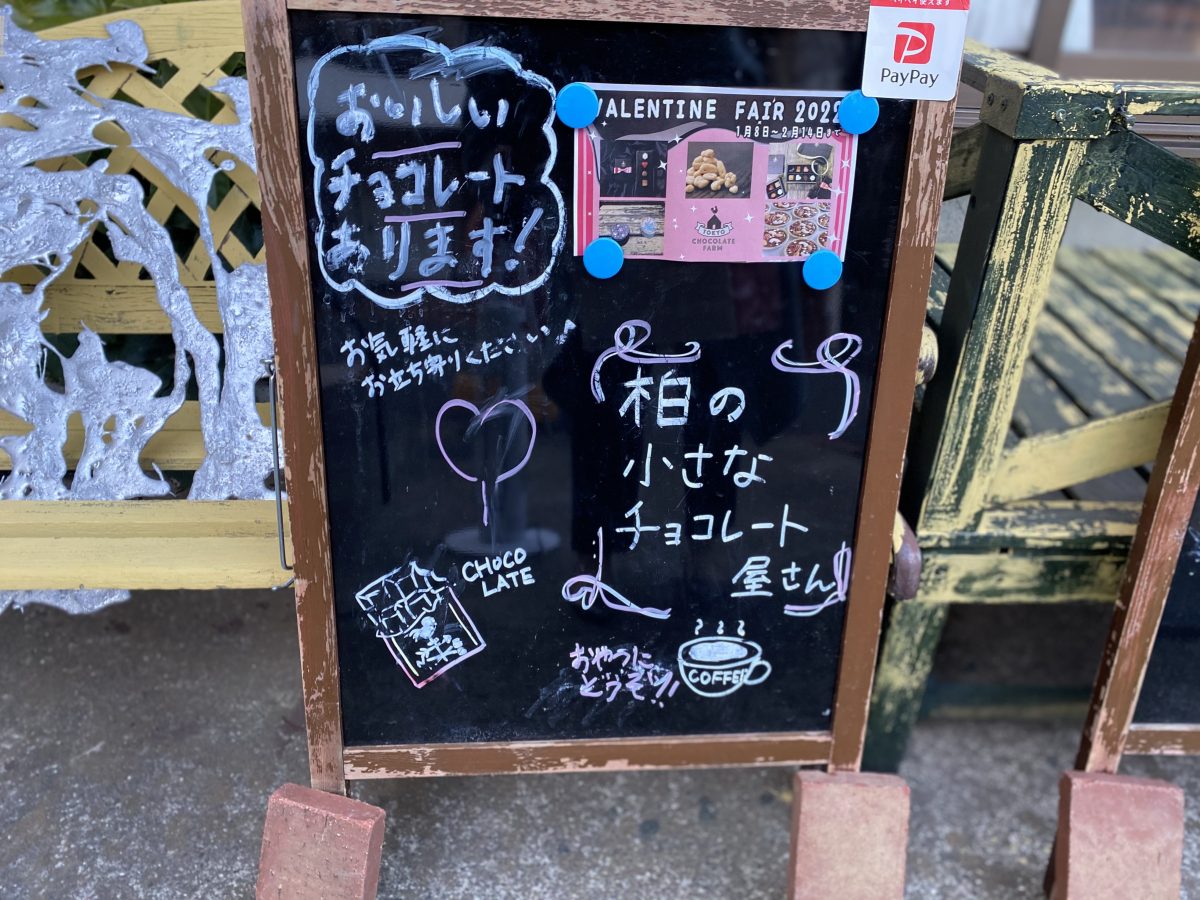 ペイペイ使えます
PayPay
おいしい
チョコレート
あります!
VALENTINE FAIR 2022
1月8日~2月14日まで
TOKYO
CHOCOLATE
FARM
お気軽に
お立ち寄りください!
柏の
小さな
チョコレート
屋さん
CHOCO
LATE
おやつに
どうぞ!!
COFFEE